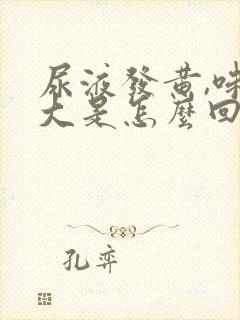 尿液發黃,味
大是怎麼回
孔弈